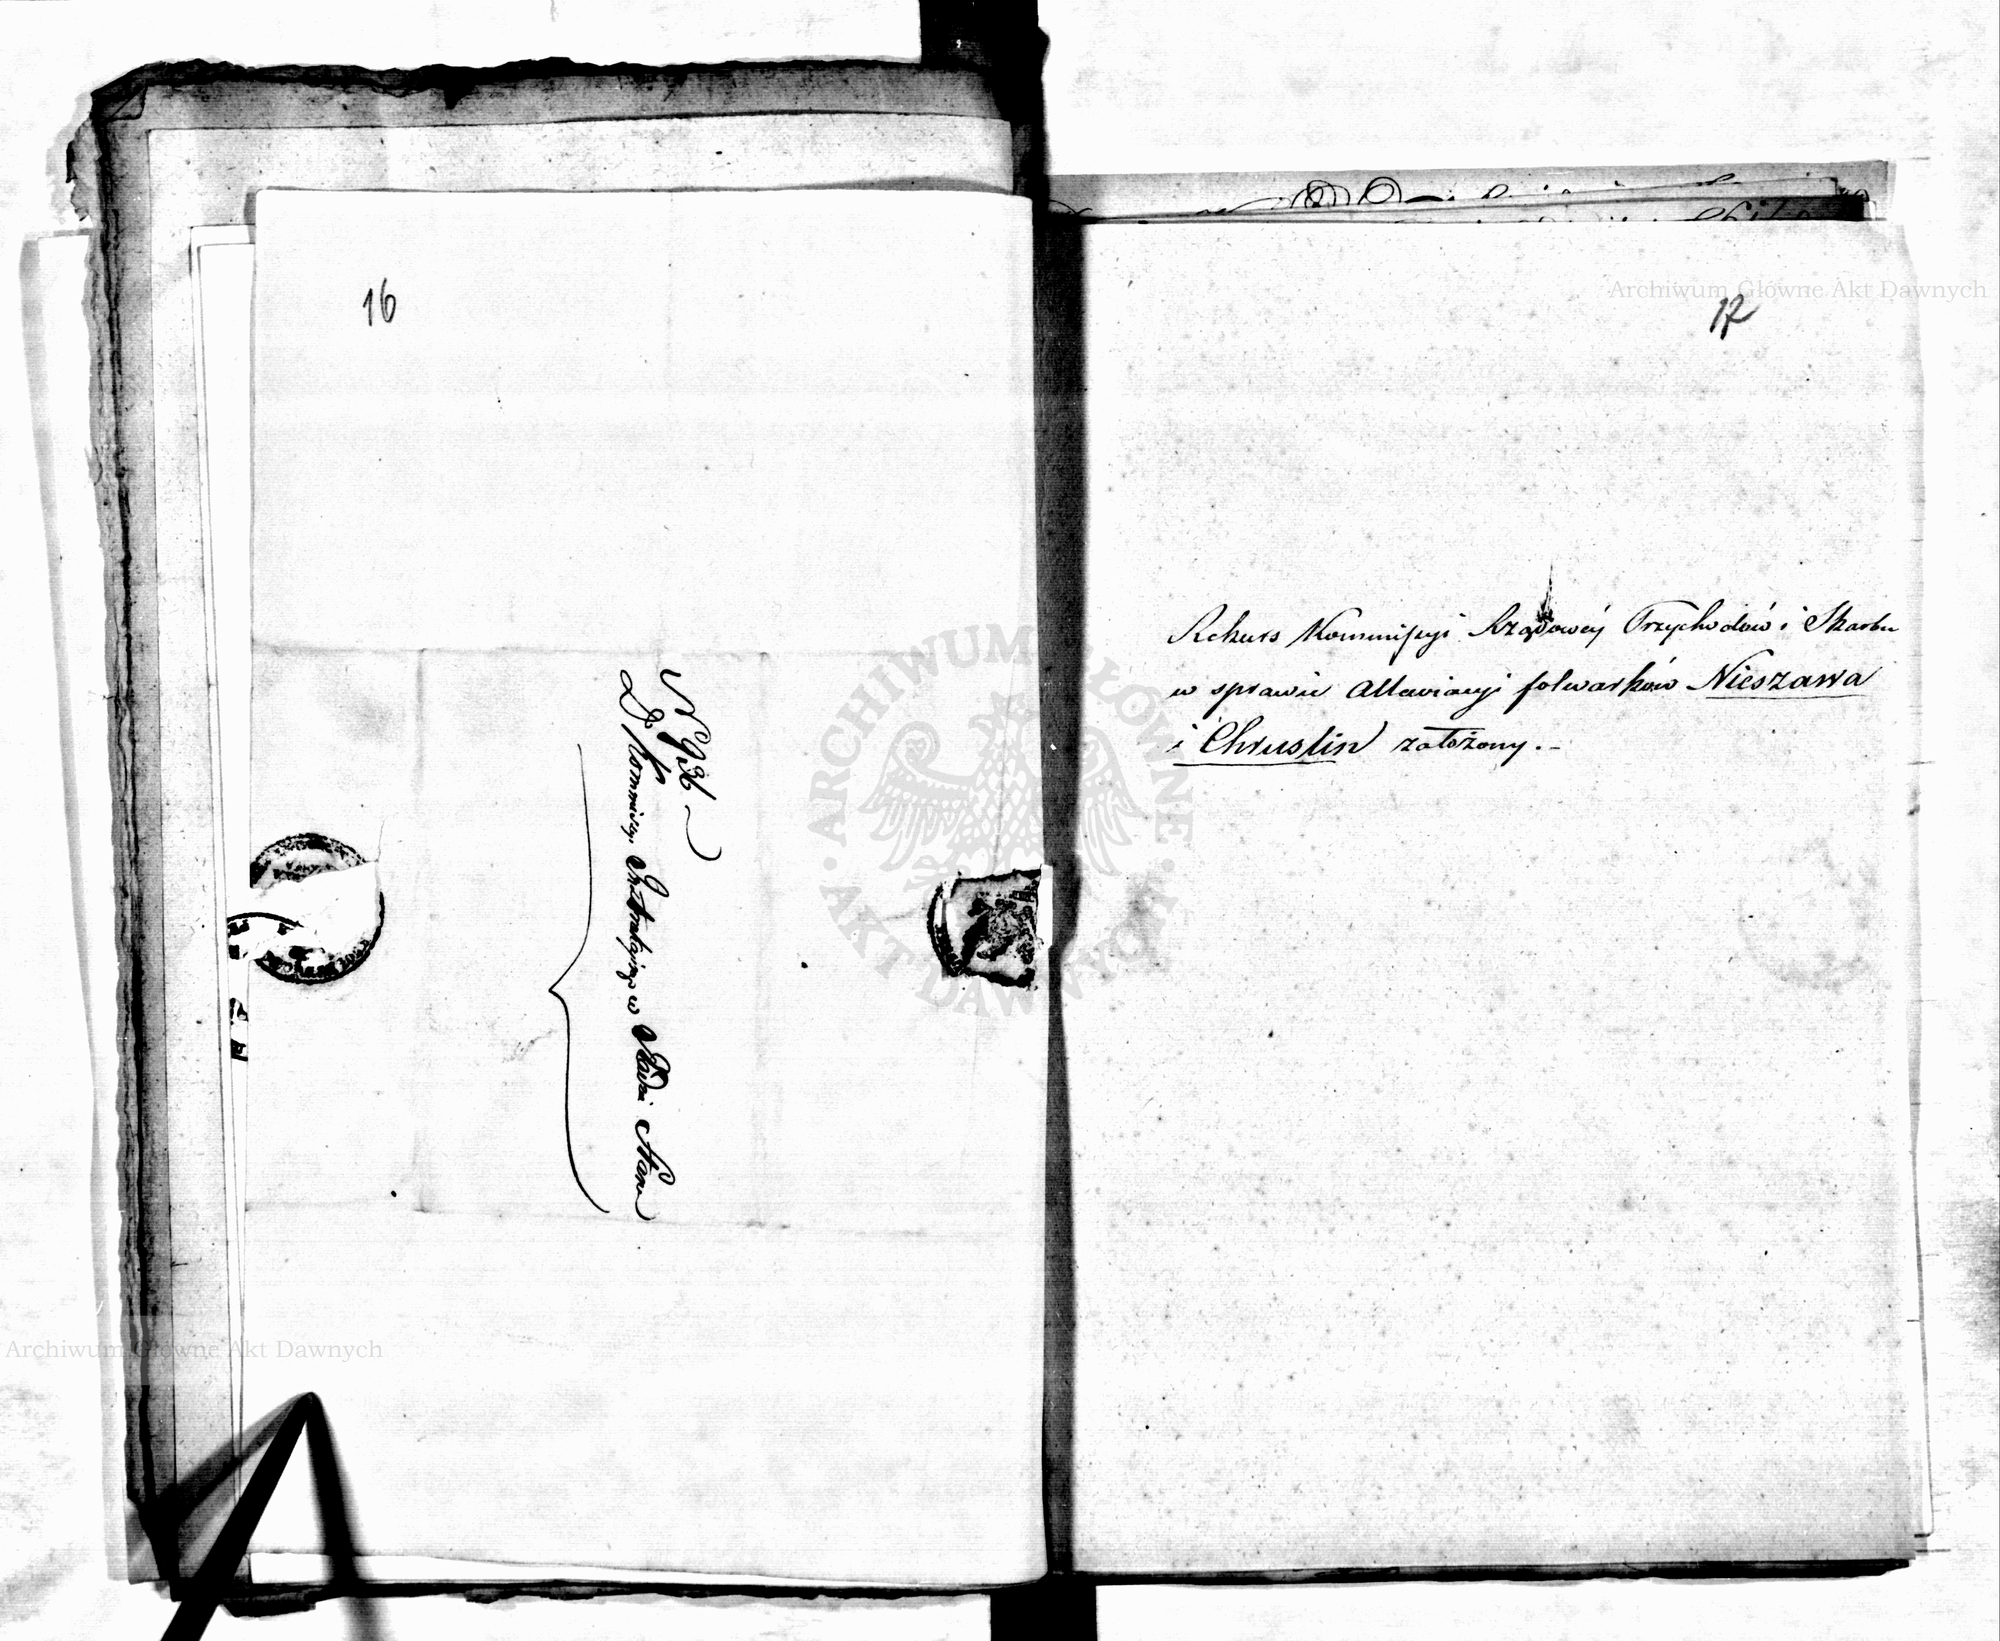 16
N 936
Do Kommissyi w Radzie Stanu
Archiwum Główne Akt Dawnych
17
Rekurs Kommissyi Rządowéy Przychodów i Skarbu
w sprawie Allewiacyi folwarków Nieszawa
i Chruslin założony.-
ARCHIWUM GŁÓWNE AKT DAWNYCH
Archiwum Główne Akt Dawnych